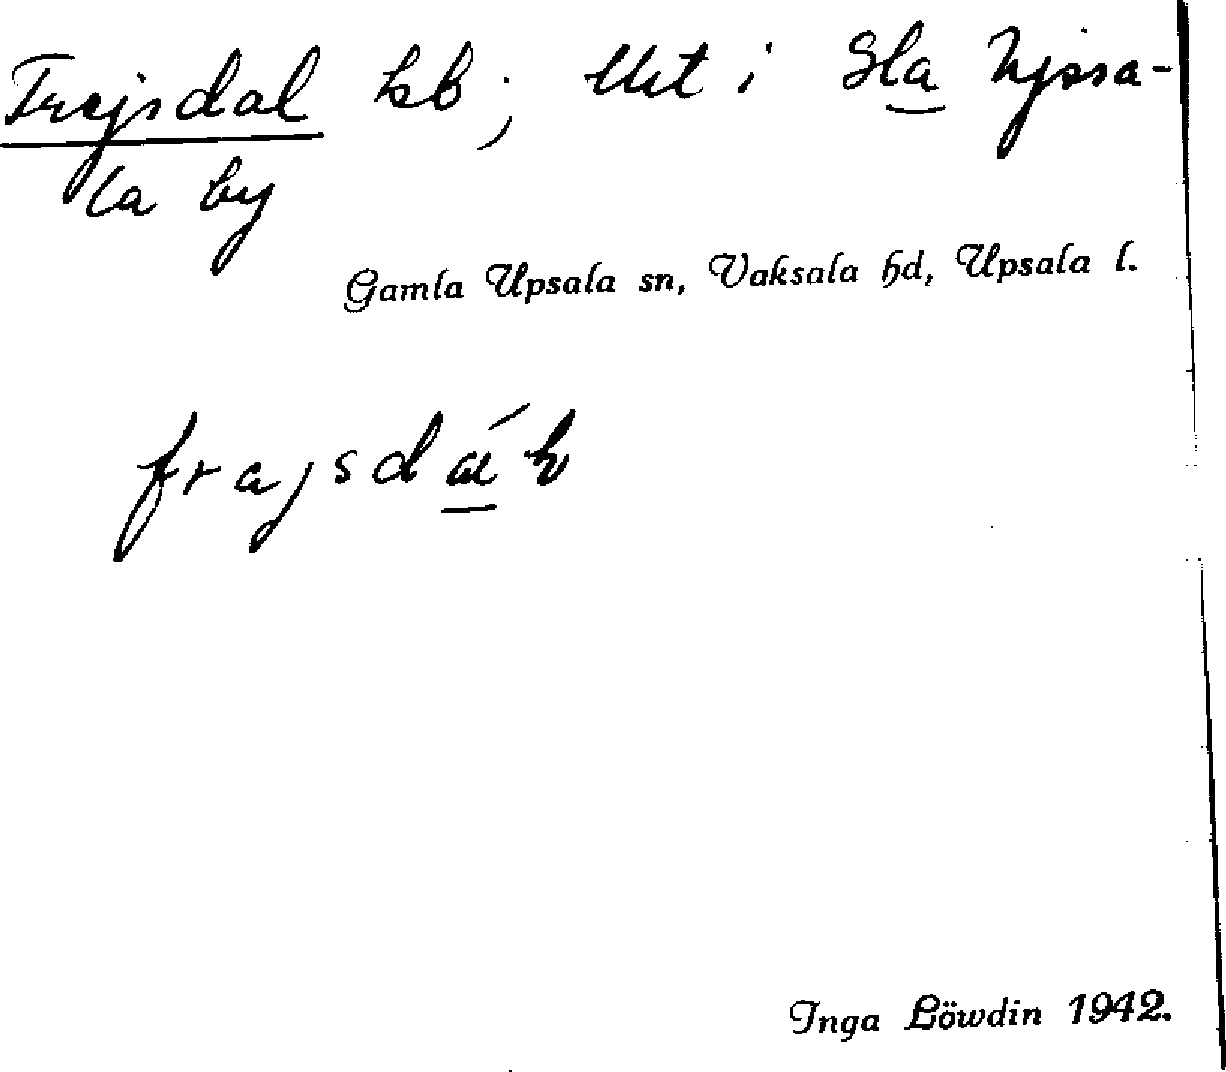 Frejsdal hb; Utt i Gla Ujssa-
la by
Gamla Upsala sn, Vaksala hd, Upsala l.
Inga Löwdin 1942.